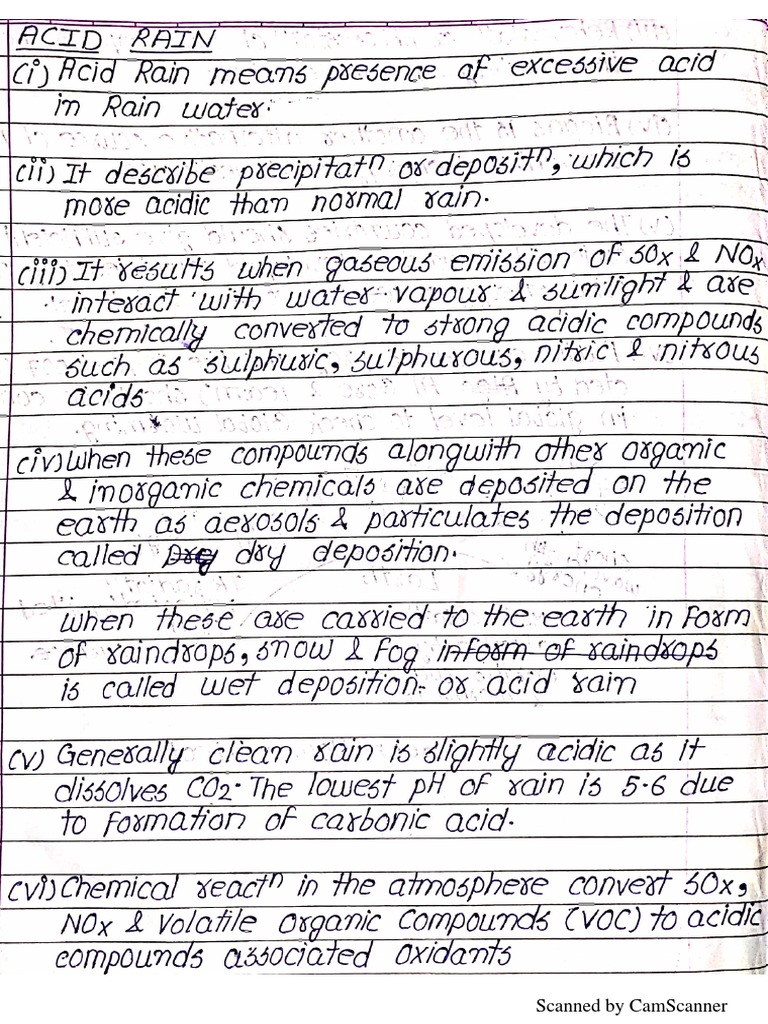 ACID RAIN
(i) Acid Rain means presence of excessive acid
in Rain water.
(ii) It describe precipitatⁿ or depositⁿ, which is
more acidic than normal rain.
(iii) It results when gaseous emission of SOx & NOx
interact with water vapour & sunlight & are
chemically converted to strong acidic compounds
such as sulphuric, sulphurous, nitric & nitrous
acids
(iv) When these compounds alongwith other organic
& inorganic chemicals are deposited on the
earth as aerosols & particulates the deposition
called Dry dry deposition.
When these are carried to the earth in form
of raindrops, snow & fog inform of raindrops
is called wet deposition. or acid rain
(v) Generally clean rain is slightly acidic as it
dissolves CO2. The lowest pH of rain is 5.6 due
to formation of carbonic acid.
(vi) Chemical reactⁿ in the atmosphere convert SOx,
NOx & Volatile Organic Compounds (VOC) to acidic
compounds associated oxidants
Scanned by CamScanner